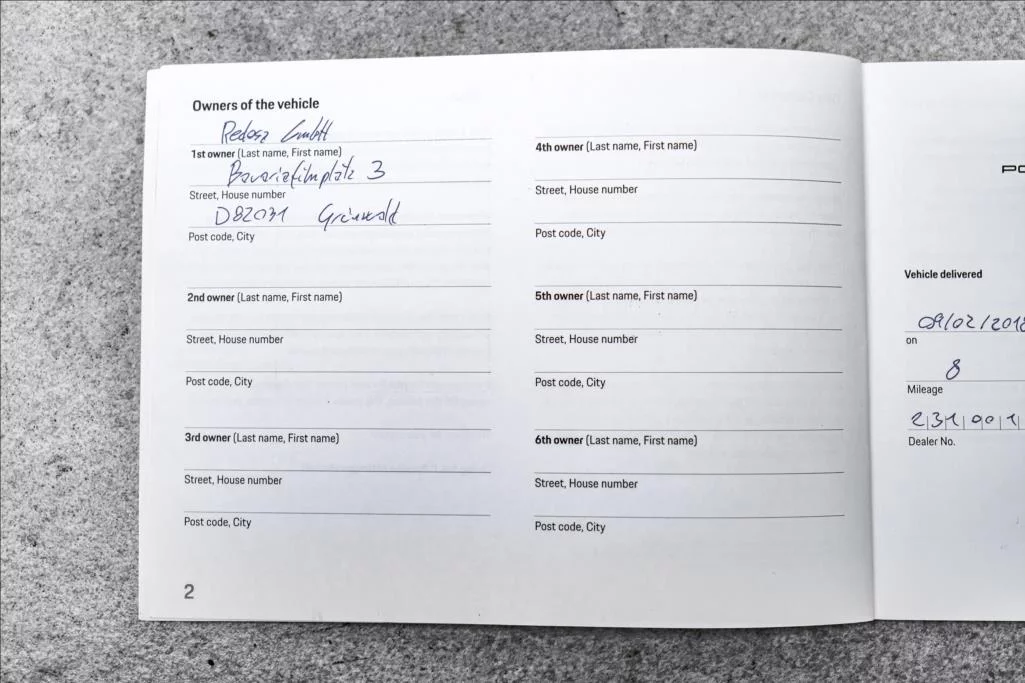 Owners of the vehicle
Redosz GmbH
1st owner (Last name, First name)
Bavariafilmplatz 3
Street, House number
D82031 Grünwald
Post code, City
2nd owner (Last name, First name)
Street, House number
Post code, City
3rd owner (Last name, First name)
Street, House number
Post code, City
2
4th owner (Last name, First name)
Street, House number
Post code, City
5th owner (Last name, First name)
Street, House number
Post code, City
6th owner (Last name, First name)
Street, House number
Post code, City
PO
Vehicle delivered
09/02/2018
on
8
Mileage
2|31|001|
Dealer No.